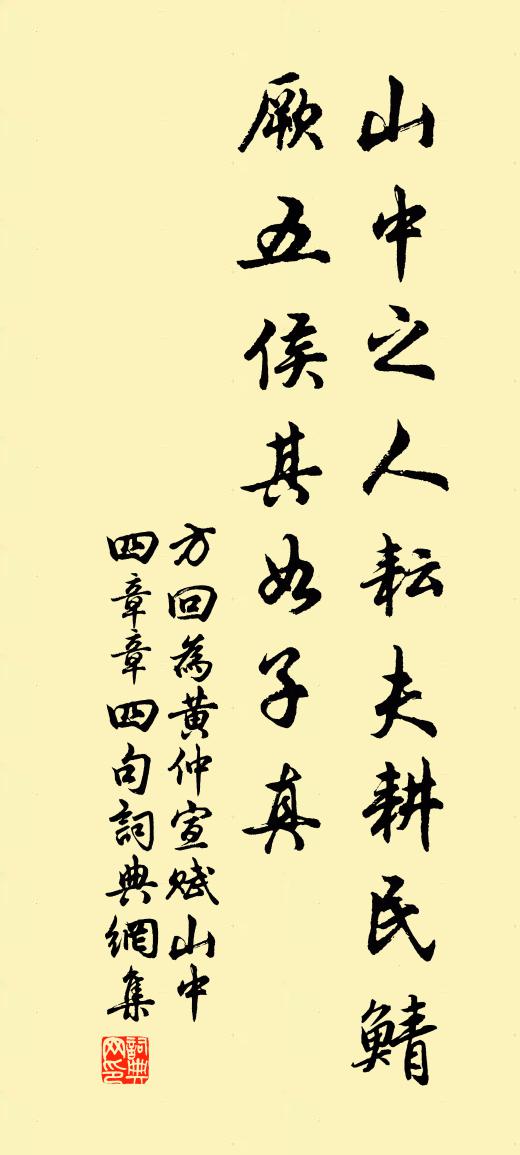 山中之人耘夫耕民鯖
厥五侯其如子真
方回為黄仲宣赋山中
四章章四句詞典網集
詞典
网印